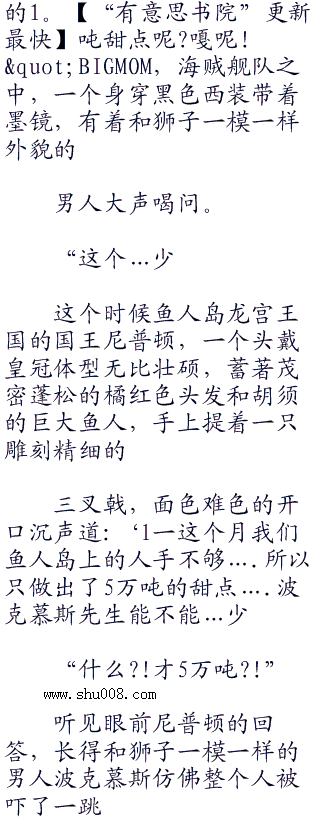 的1。【“有意思书院”更新
最快】吨甜点呢?嘎呢!
&quot;BIGMOM，海贼舰队之
中，一个身穿黑色西装带着
墨镜，有着和狮子一模一样
外貌的
男人大声喝问。
“这个…少
这个时候鱼人岛龙宫王
国的国王尼普顿，一个头戴
皇冠体型无比壮硕，蓄著茂
密蓬松的橘红色头发和胡须
的巨大鱼人，手上提着一只
雕刻精细的
三叉戟，面色难色的开
口沉声道：‘1一这个月我们
鱼人岛上的人手不够….所以
只做出了5万吨的甜点….波
克慕斯先生能不能…少
“什么?!才5万吨?!”
www.shu008.com
听见眼前尼普顿的回
答，长得和狮子一模一样的
男人波克慕斯仿佛整个人被
吓了一跳